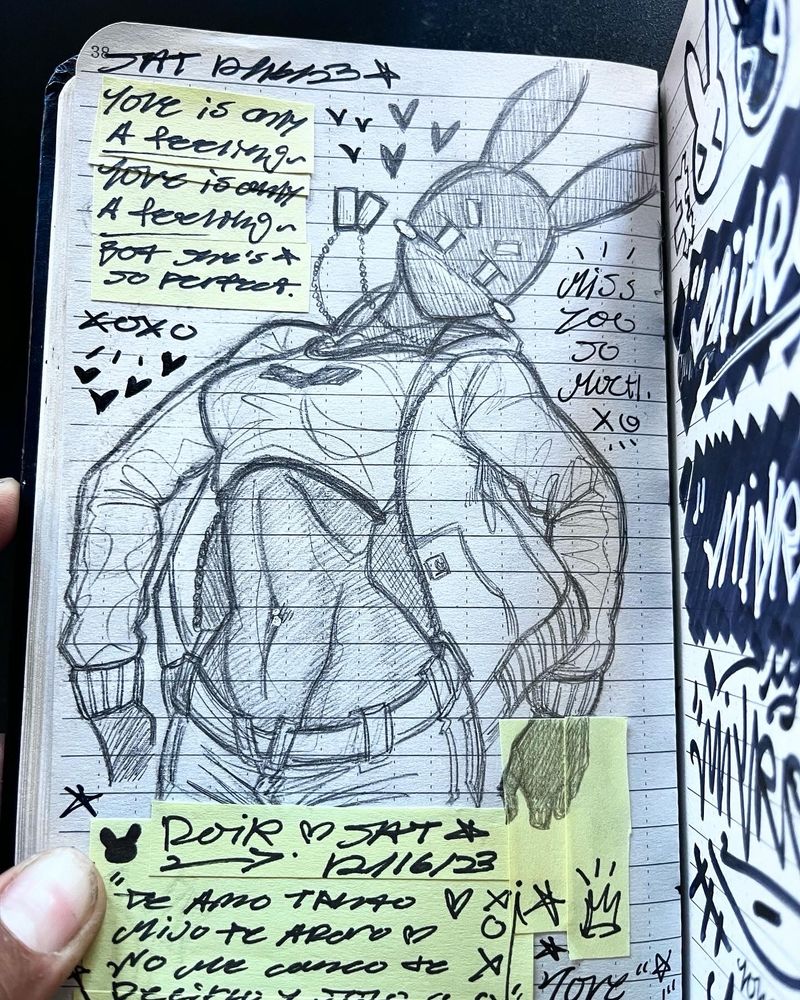 38
SAT 12/16/23
Love is only
A feeling
Love is only
A feeling
But she's
so perfect.
XOXO
Miss
You
So
Much!
XO
Roik SAT
12/16/23
"Te amo tanto
Mijo te adoro
No me canso de
XO
X
Love"
"Miyre
"Miyre